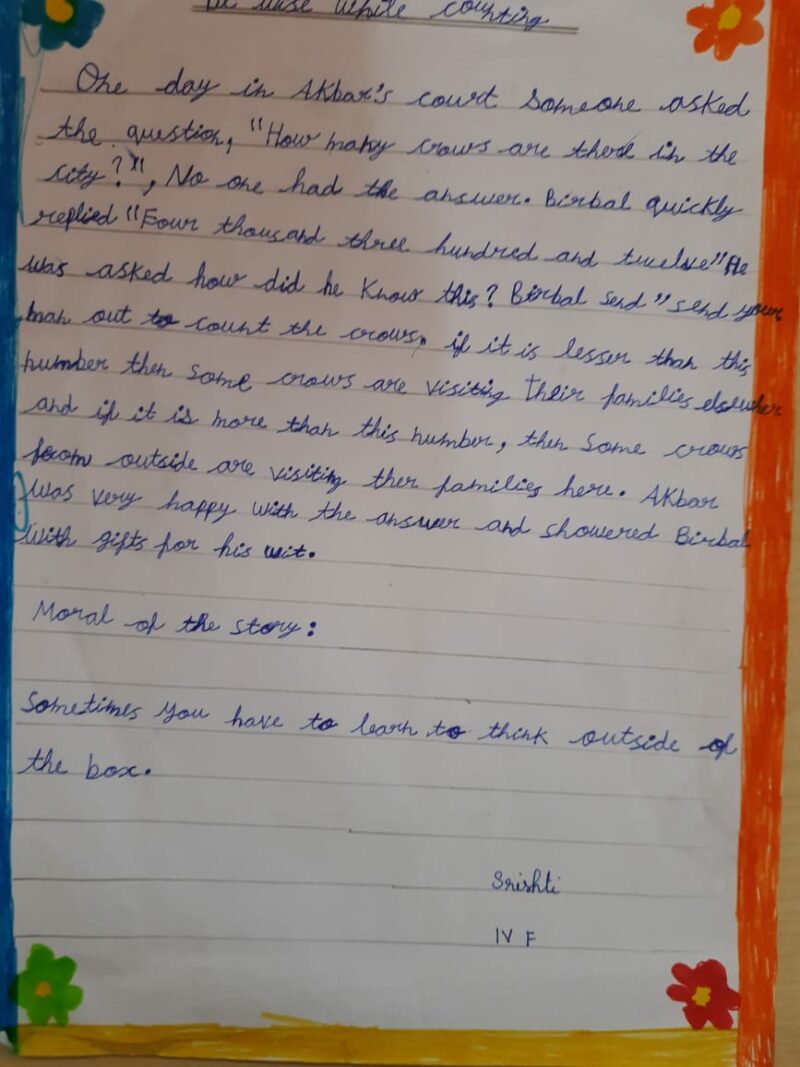 Be wise while counting
One day in Akbar's court someone asked
the question, "How many crows are there in the
city?", No one had the answer. Birbal quickly
replied "Four thousand three hundred and twelve" He
was asked how did he know this? Birbal send "send your
man out to count the crows, if it is lesser than this
number then some crows are visiting their families elsewher
and if it is more than this number, then some crows
from outside are visiting ther families here. Akbar
was very happy with the answer and showered Birbal
with gifts for his wit.
Moral of the story:
Sometimes you have to learn to think outside of
the box.
Srishti
IV F